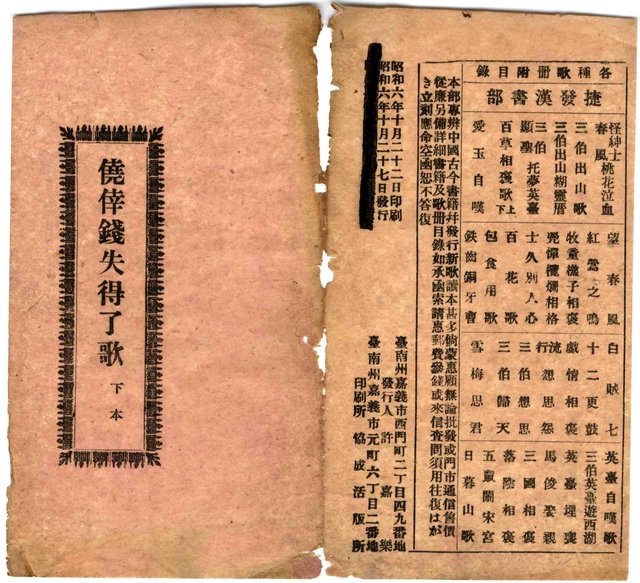 各種歌冊附目錄
捷發漢書部
怪紳士桃花泣血
春風
三伯出山歌
三伯出山糊靈厝
三伯顯聖托夢英臺
百草相褒歌上下
愛玉自嘆
望春風
紅鶯之鳴
牧童樵子相褒
相格
士久別人心
百花歌
包食用歌
鉄齒銅牙曹
白賊七
十二更鼓
戲情相褒
流行想思怨
三伯想思
三伯歸天
雪梅思君
英臺自嘆歌
三伯英臺遊西湖
英臺埋喪
馬俊娶親
三國相褒
落陰相褒
五鼠鬧宋宮
日暮山歌
本部專辨中國古今書籍幷發行新歌讀本甚多倘蒙惠顧無論批發或門市通信售價
從廉另備詳細書籍及歌册目錄如承函索請惠郵費參錢或來信查問須用往復はが
き立刻應命空函恕不答復
昭和六年十月二十二日印刷
昭和六年十月二十七日發行
臺南州嘉義市西門町二丁目四九番地
發行人 許嘉樂
臺南州嘉義市元町六丁目二番地
印刷所 協成活版所
僥倖錢失得了歌 下本